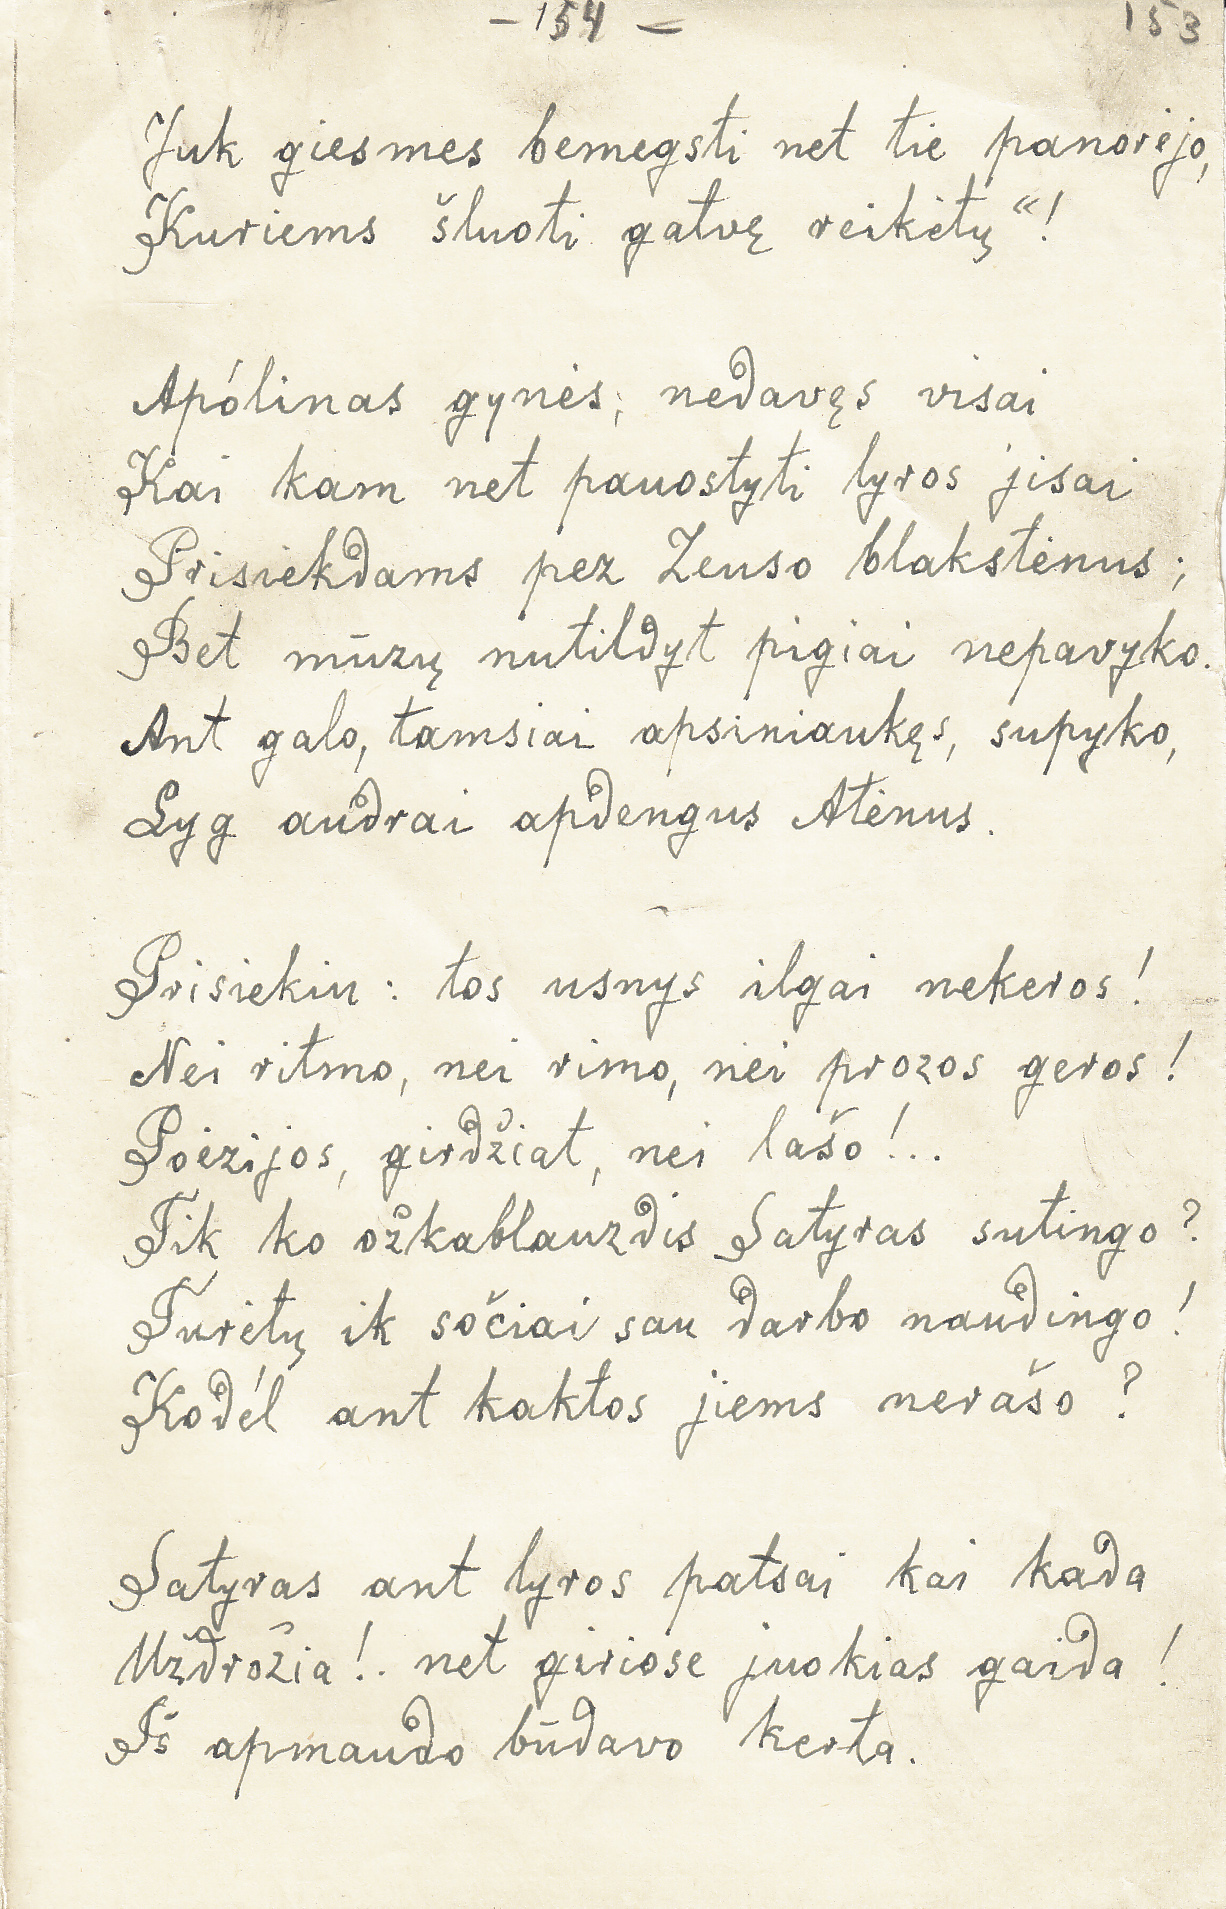 – 154 –
153
Juk giesmes bemegsti net tie panorėjo,
Kuriems šluoti gatvę reikėtų“!
Apólinas gynės; nedavęs visai
Kai kam net pauostyti lyros jisai
Prisiekdams pez Zeuso blakstėnus;
Bet mūzų nutildyt pigiai nepavyko.
Ant galo, tamsiai apsiniaukęs, supyko,
Lyg audrai apdengus Atėnus.
Prisiekiu: tos usnys ilgai nekeros!
Nei ritmo, nei rimo, nei prozos geros!
Poėzijos, girdžiat, nei lašo!..
Tik ko ožkablauzdis Satyras sutingo?
Turėtų ik sočiai sau darbo naudingo!
Kodėl ant kaktos jiems nerašo?
Satyras ant lyros patsai kai kada
Uždrožia!. net giriose juokias gaida!
Iš apmaudo būdavo kerta.